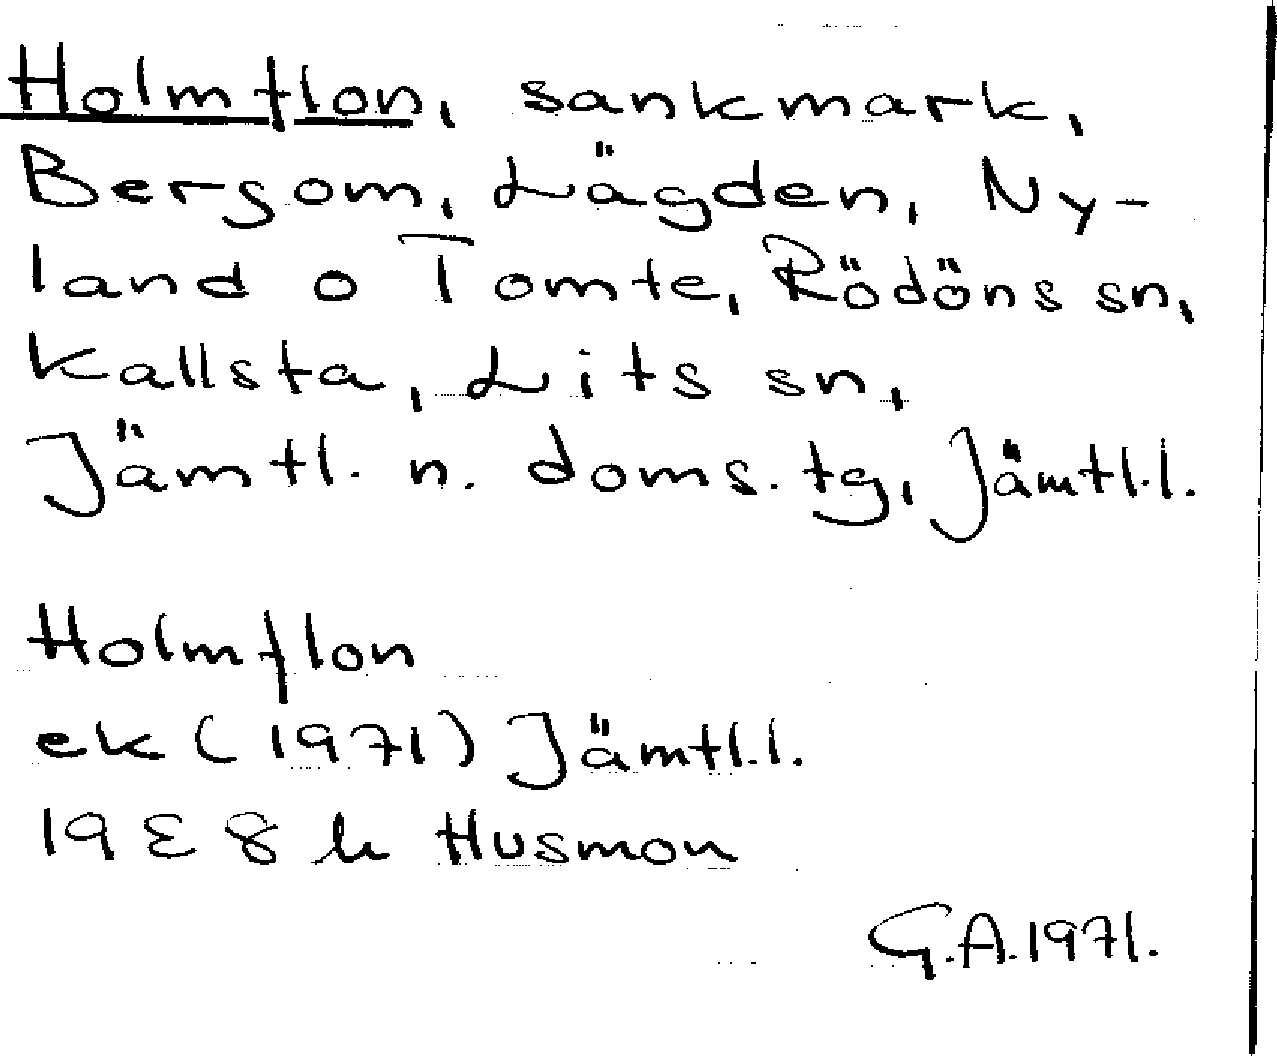 Holmflon, sankmark,
Bergom, Lägden, Ny-
land o Tomte, Rödöns sn,
Kallsta, Lits sn,
Jämtl. n. doms. tg, Jämtl.l.
Holmflon
ek (1971) Jämtl.l.
19 E 8 h Husmon
G.A. 1971.